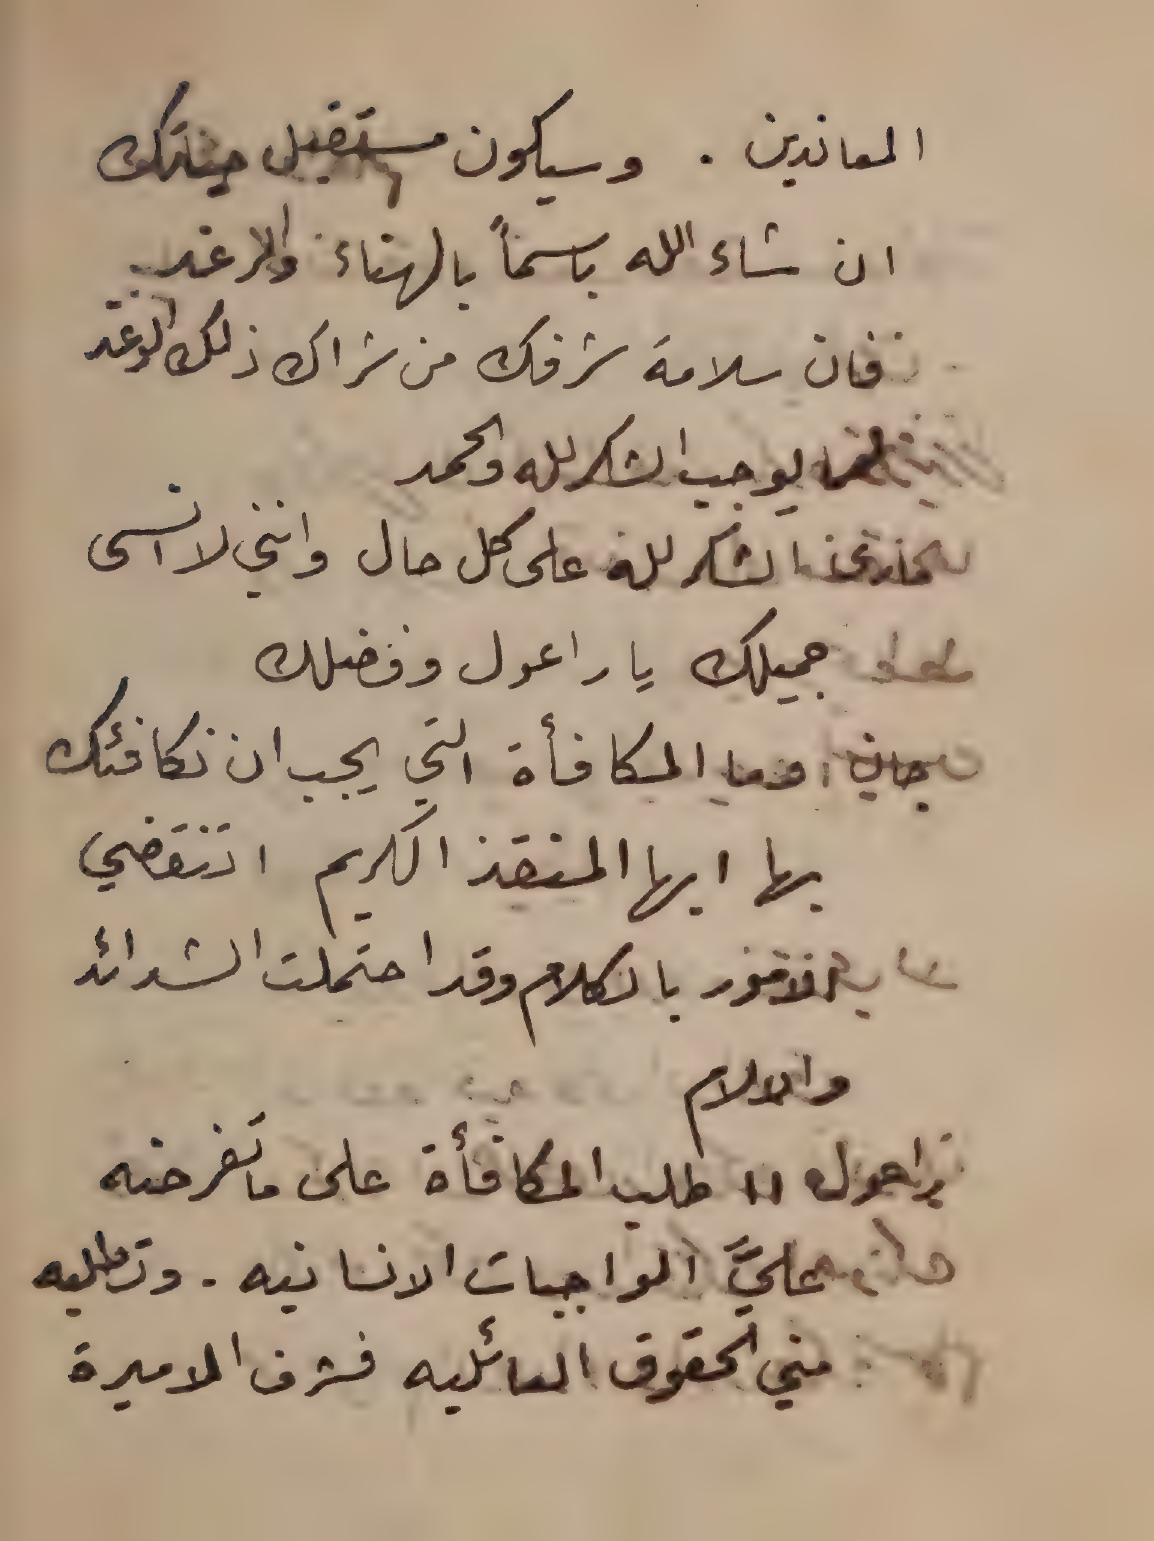 المعاندين . وسيكون مستقبل حياتك
ان شاء الله باسماً بالهناء والرغد
فان سلامة شرفك من شراك ذلك الوغد
يوجب الشكر لله والحمد
الشكر لله على كل حال وانني لا انسى
جميلك يا راعول وفضلك
المكافأة التي يجب ان نكافئك
بها ايها المنقذ الكريم اتنقضي
بالكلام وقد احتملت الشدائد
والالام
راعول اا طلب المكافأة على ما تفرضه
عليَّ الواجبات الانسانيه . وتطلبه
مني الحقوق العائليه فشرف الاميرة